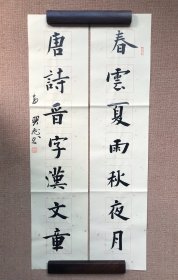 春雲夏雨秋夜月
唐詩晉字漢文章